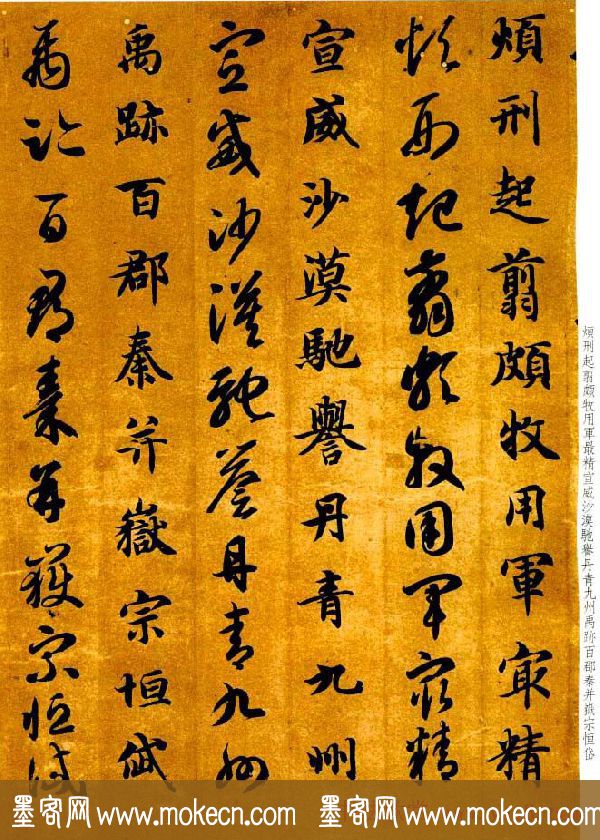 煩刑起翦頗牧用軍最精宣威沙漠馳譽丹青九州禹跡百郡秦并嶽宗恒岱
煩刑起翦頗牧用軍冣精
煩刑起翦頗牧用軍冣精
宣威沙漠馳譽丹青九州
宣威沙漠馳譽丹青九州
禹跡百郡秦并嶽宗恒岱
禹跡百郡秦并嶽宗恒岱
墨客网 www.mokecn.com 墨客网 www.mokecn.com